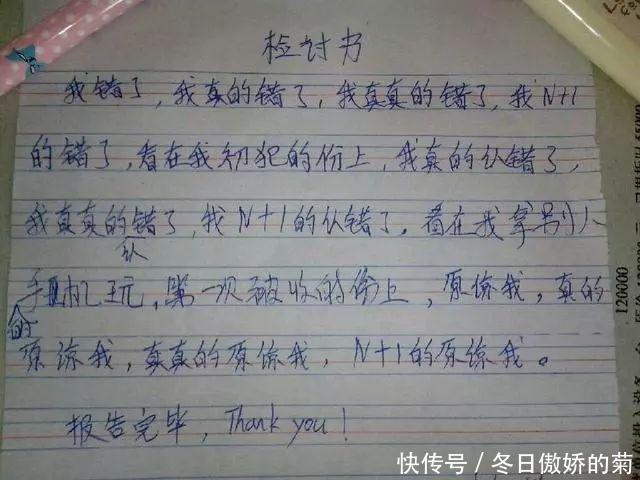 检讨书
我错了，我真的错了，我真真的错了，我N+1
的错了，看在我初犯的份上，我真的认错了，
我真真的认错了，我N+1的认错了，看在我拿别人
的手机玩，第一次被收的份上，原谅我，真的
原谅我，真真的原谅我，N+1的原谅我。
报告完毕，Thank you！
120000
快传号／冬日傲娇的菊